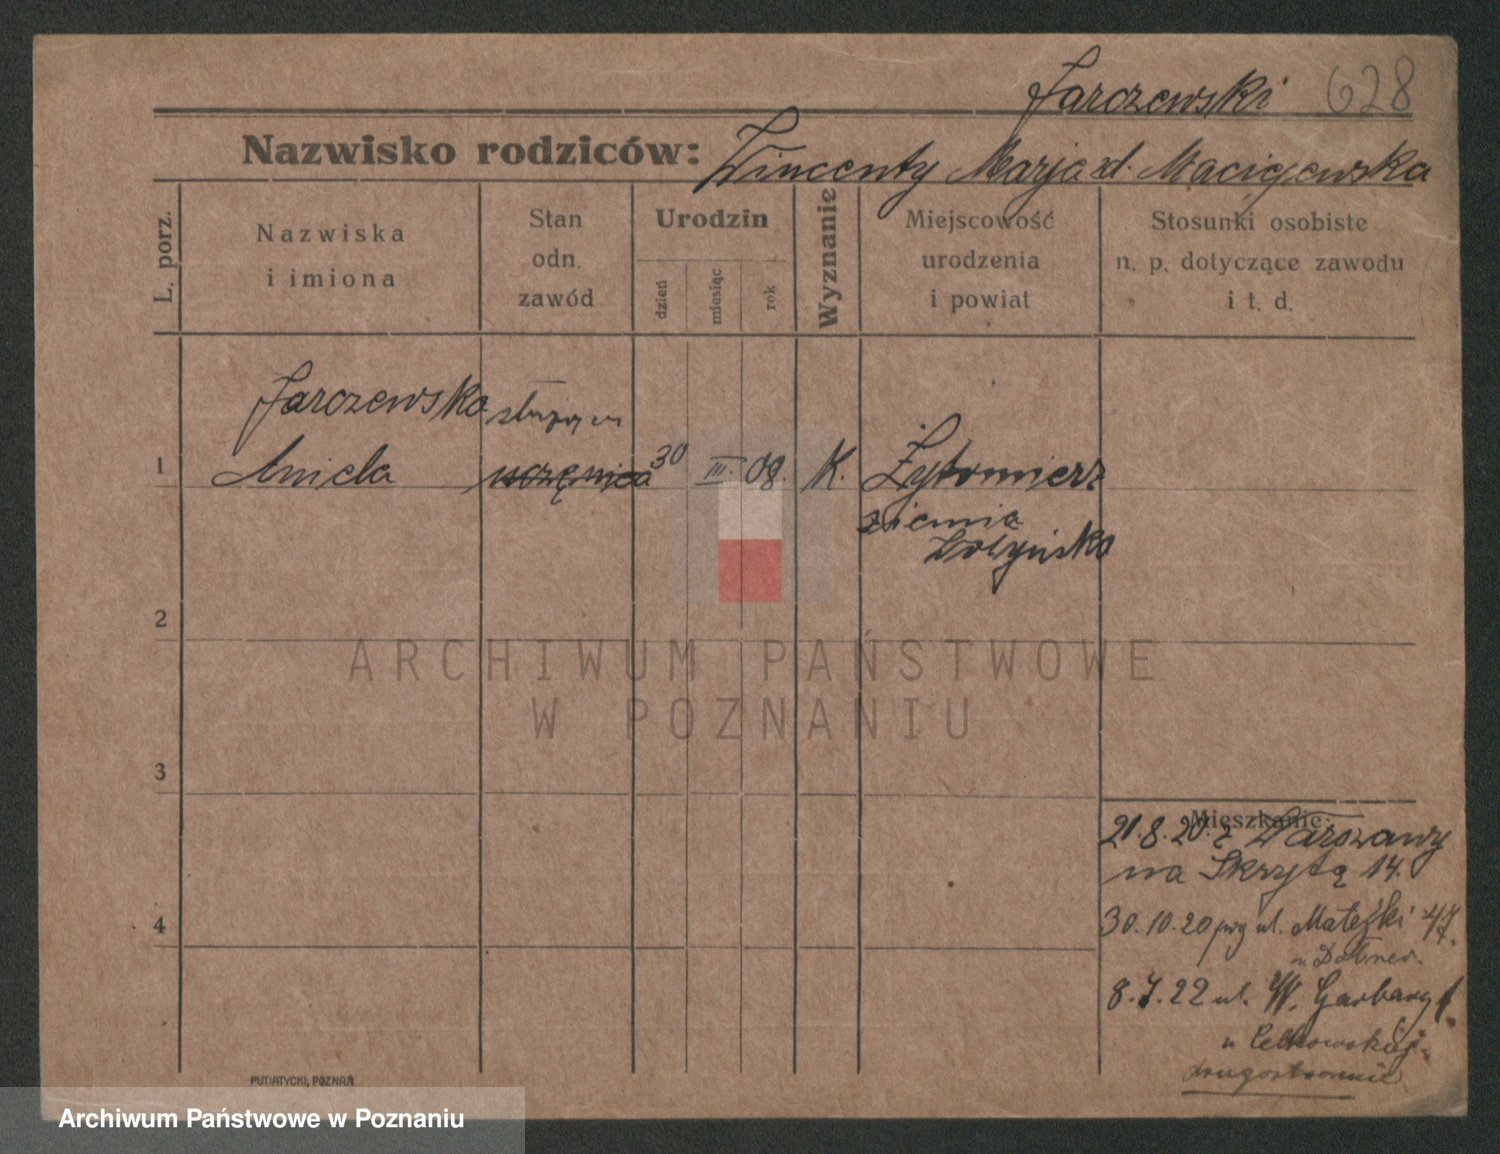 Jarczewski 628
Nazwisko rodziców: Wincenty Marja zd. Maciejewska
L. porz.
Nazwiska
i imiona
Stan
odn.
zawód
Urodzin
dzień
miesiąc
rok
Wyznanie
Miejscowość
urodzenia
i powiat
Stosunki osobiste
n. p. dotyczące zawodu
i t. d.
Jarczewska służąca
1 Aniela uczenica 30 III. 08. K. Żytomierz
ziemia
Wołyńska
2
ARCHIWUM PAŃSTWOWE
W POZNANIU
3
Mieszkanie:
21.8.20. z Warszawy
na Skrytą 14.
4
30.10.20 prg ul. Matejki 47.
u
8.7.22 ul. W. Garbary 1.
u
drugostronnie
PUTIATYCKI, POZNAŃ
Archiwum Państwowe w Poznaniu